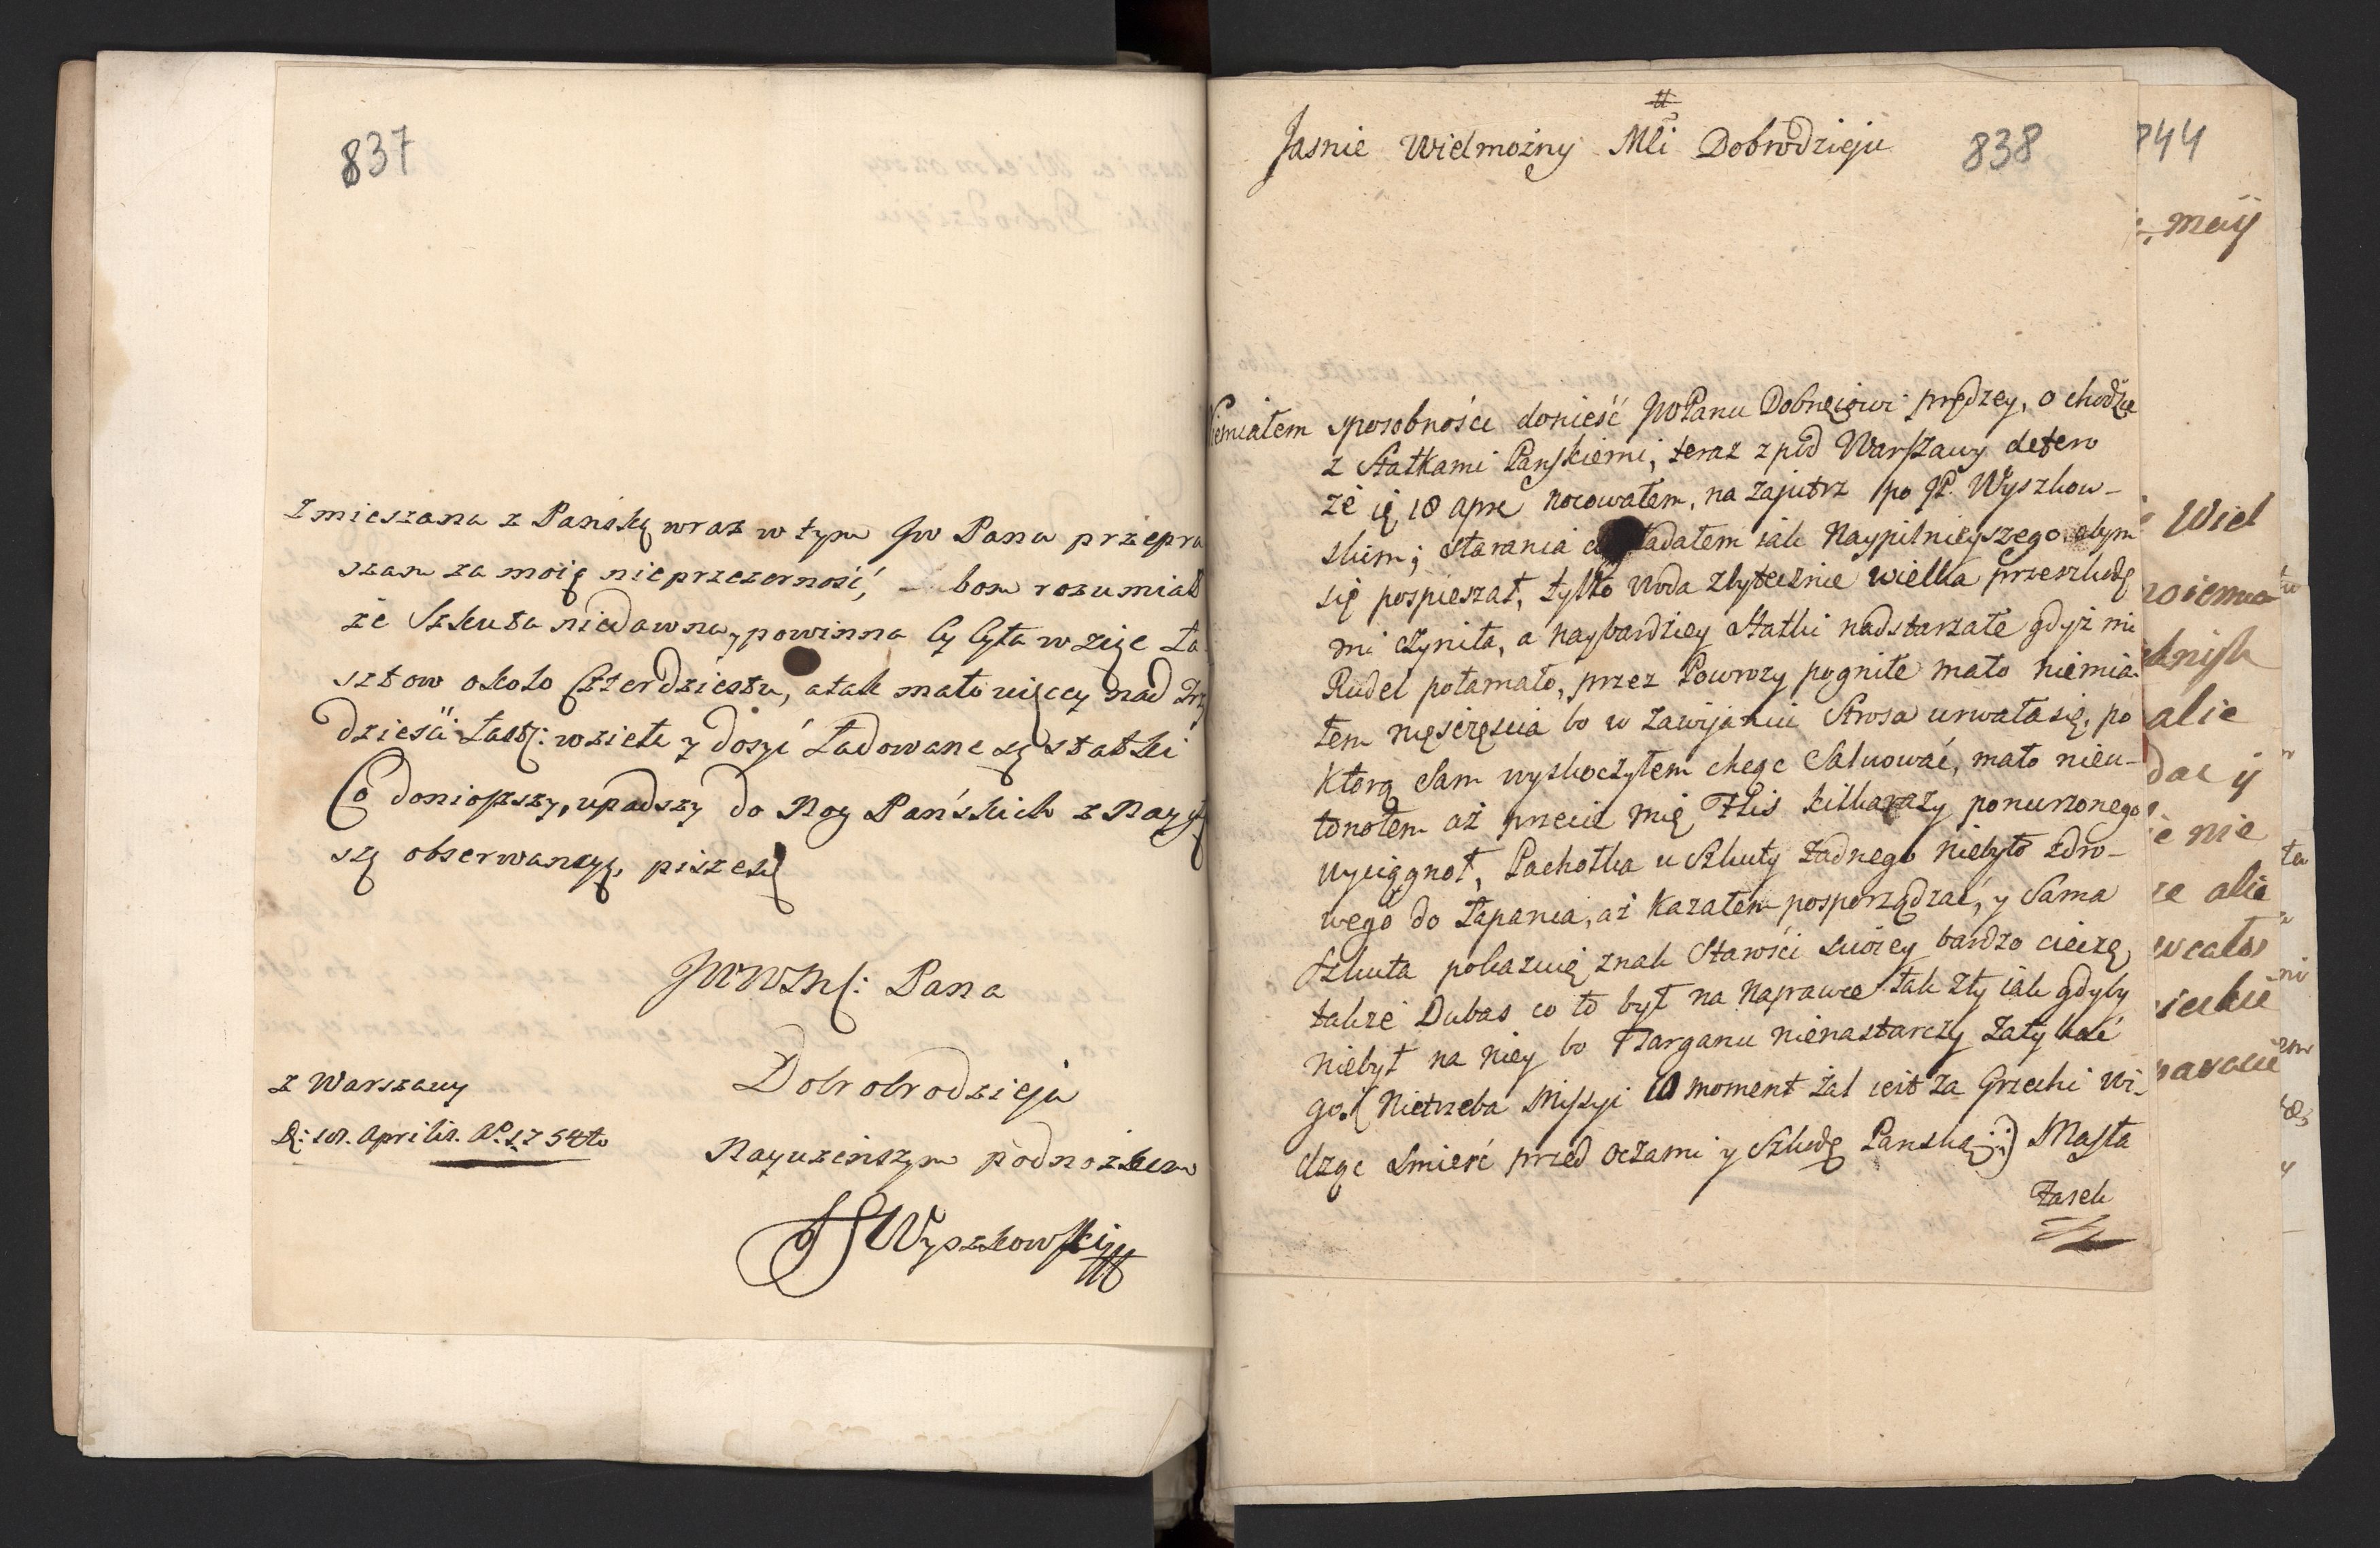 837
Zmieszana z Pańską wraz w tym Jw Pana przepra
szam za moię nieprzezorność, bom rozumiał
że Szkuta niedawna, powinna by była wziąc Ła
sztow około Czterdziestu, a tak mało więcy nad Trzy
dzieści Łaszt: wzieła y dosyć Ładowane są statki
Co doniosszy, upadszy do Nog Pańskich z Nay
szą obserwancyą, piszesię
JWWMC: Pana
Dobrobrodzieja
Nayuniższym podnożkiem
Wyszkowski
z Warszawy
D: 18. Aprilis. Ao. 1754to
838
Jasnie Wielmożny Mci Dobrodzieju
Niemiałem sposobności donieść JWPanu Dobrejowi prędzey, o chodzie
z Statkami Panskiemi, teraz z pod Warszawy defero
że ię 18 apre nocowałem, na Zajutrz po JP. Wyszkow-
skim; starania dokładałem iak Naypilnieyszego abym
się pospieszał, tylko Woda zbytecznie wielka przeszkodę
mi czyniła, a naybardziey Statki nadstarzałe gdyż mi
Rudel połamało, przez Powrozy pogniłe mało niemia-
łem nieszczęscia bo w Zawijaniu Strosa urwała się, po
Ktorą Sam wyskoczyłem chcąc Salwować, mało nieu-
tonołem aż przecie mię Flis kilkarazy ponurzonego
wyciągnoł, Pachołka u Szkuty Żadnego niebyło zdro-
wego do Łapania, aż Kazałem posporządzać, y Sama
Szkuta pokazuię znak Starości swoiey bardzo ciecze,
także Dubas co to był na Naprawce tak zły iak gdyby
niebył na niey bo Targanu nienastarczy Zatykać
go. (Nietrzeba Missyi w moment żal iest za Grzechi wi-
dząc Smierć przed Oczami y Szkodę Panską:) Masła
Zasek
844
may
Wiel
alie
dac y
e nie
ze alie